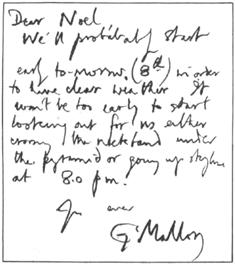 Dear Noel,
We'll probably start
early to-morrow (8th) in order
to have clear weather. It
won't be too early to start
looking out for us either
crossing the rockband under
the pyramid or going up skyline
at 8.0 p.m.
ever
G Mallory